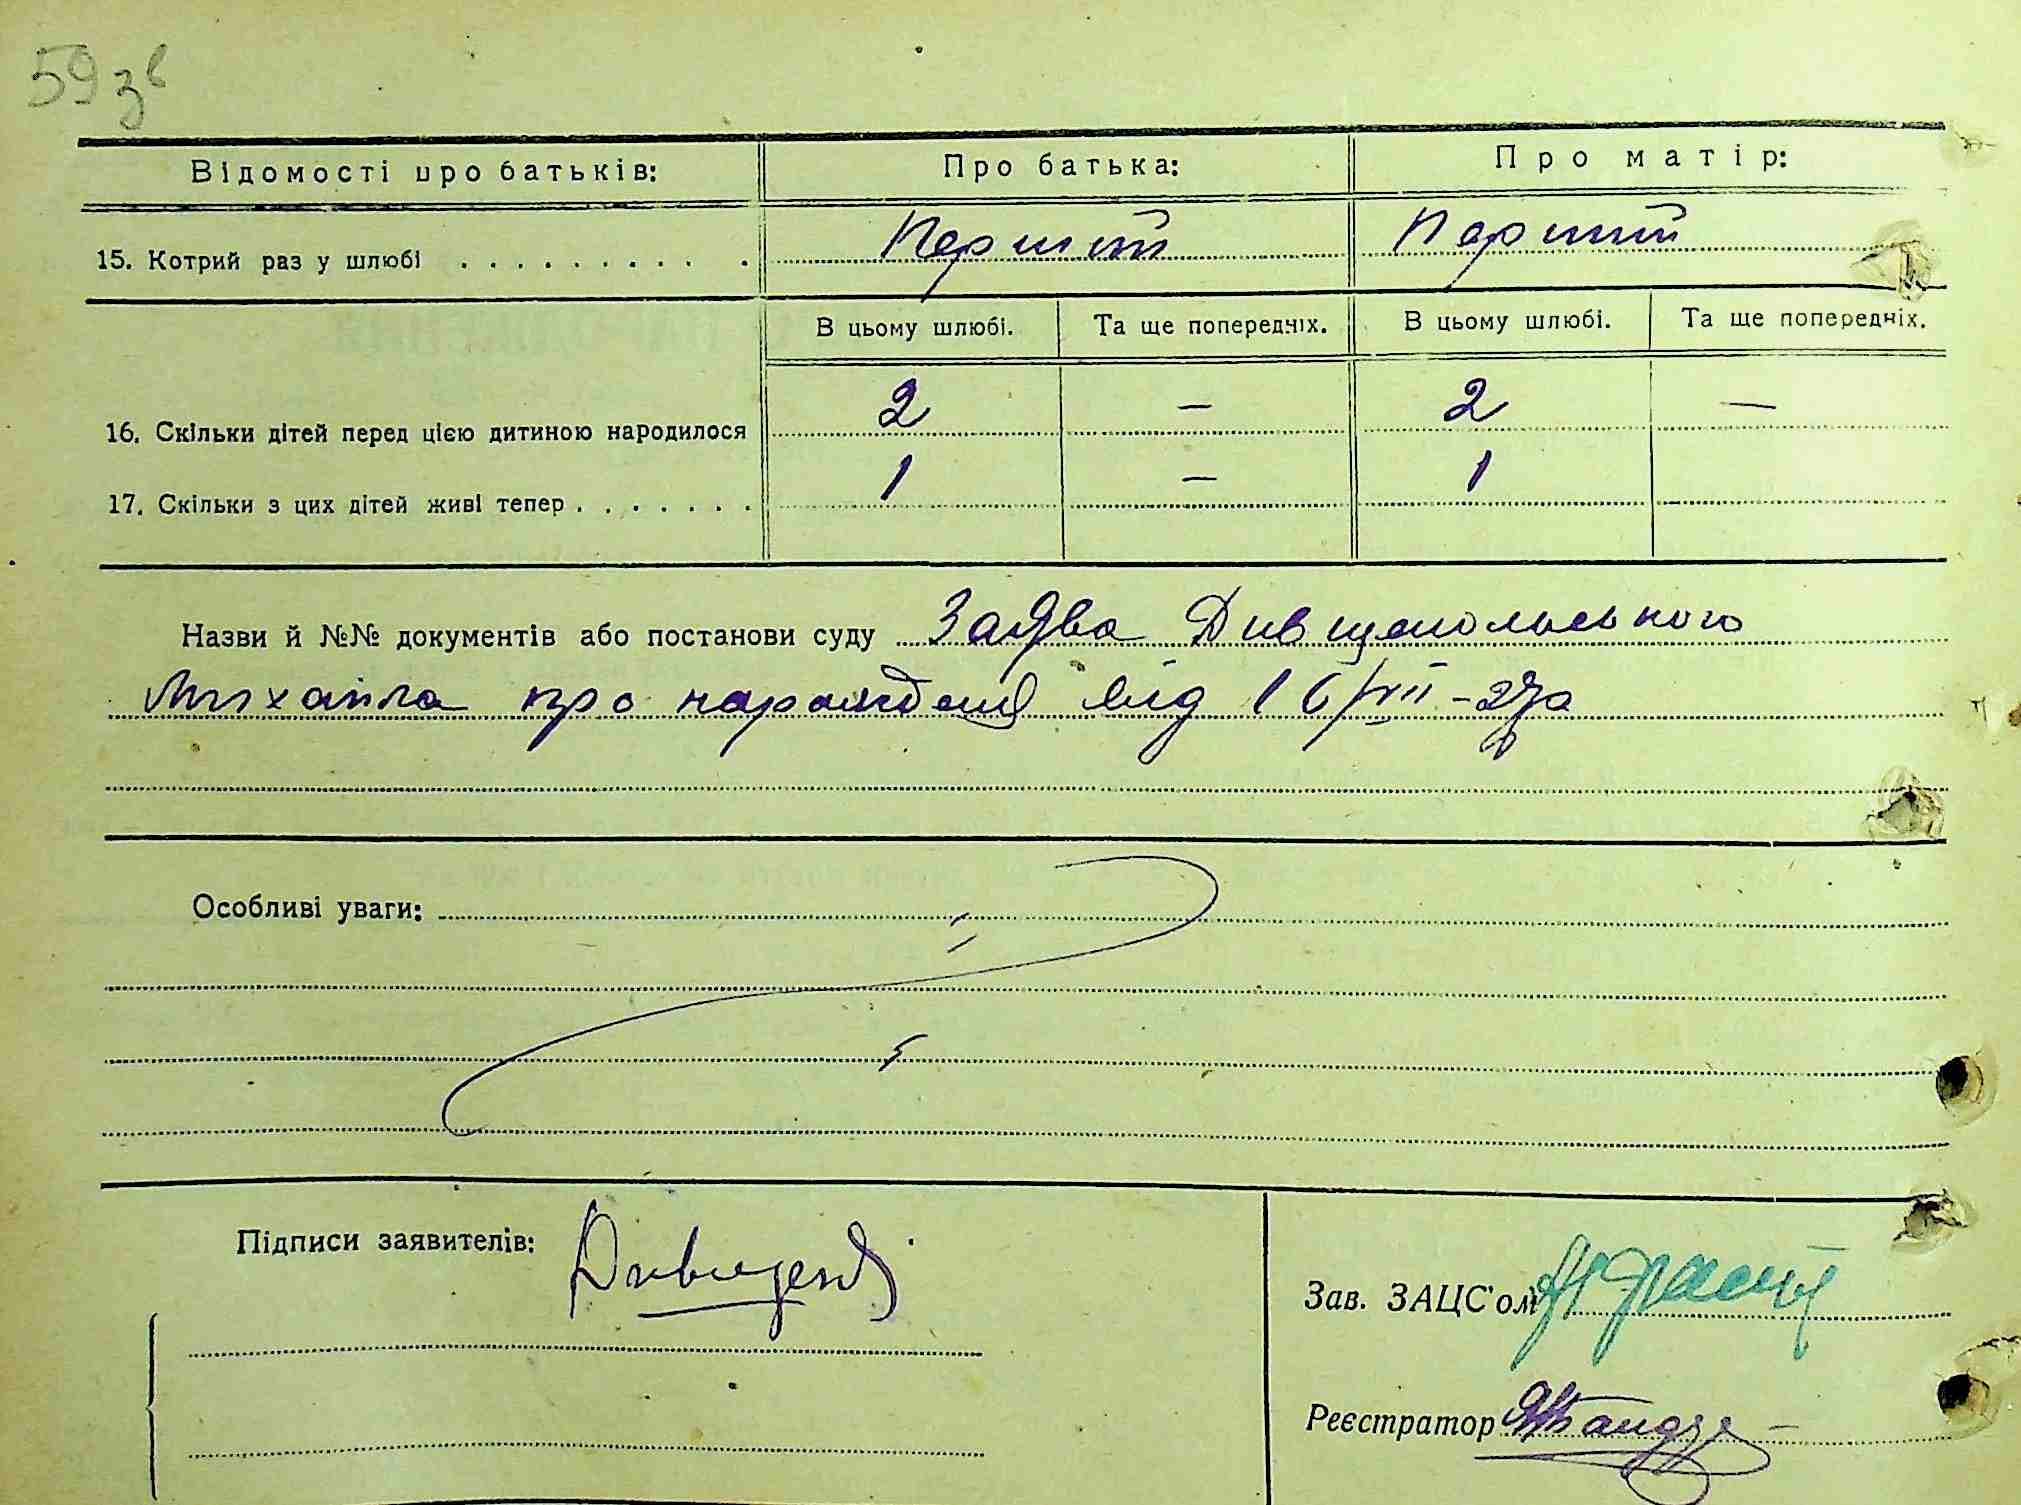 59 зв
Відомості про батьків: Про батька: Про матір:
15. Котрий раз у шлюбі . . . . . . . . . . Перший Перший
В цьому шлюбі. Та ще попередніх. В цьому шлюбі. Та ще попередніх.
16. Скільки дітей перед цією дитиною народилося 2 — 2 —
17. Скільки з цих дітей живі тепер . . . . . . . 1 — 1
Назви й №№ документів або постанови суду Заява Дивщепольського
Михайла про народження від 16/VII-27р
Особливі уваги:
Підписи заявителів:
Зав. ЗАЦС'ом
Реєстратор